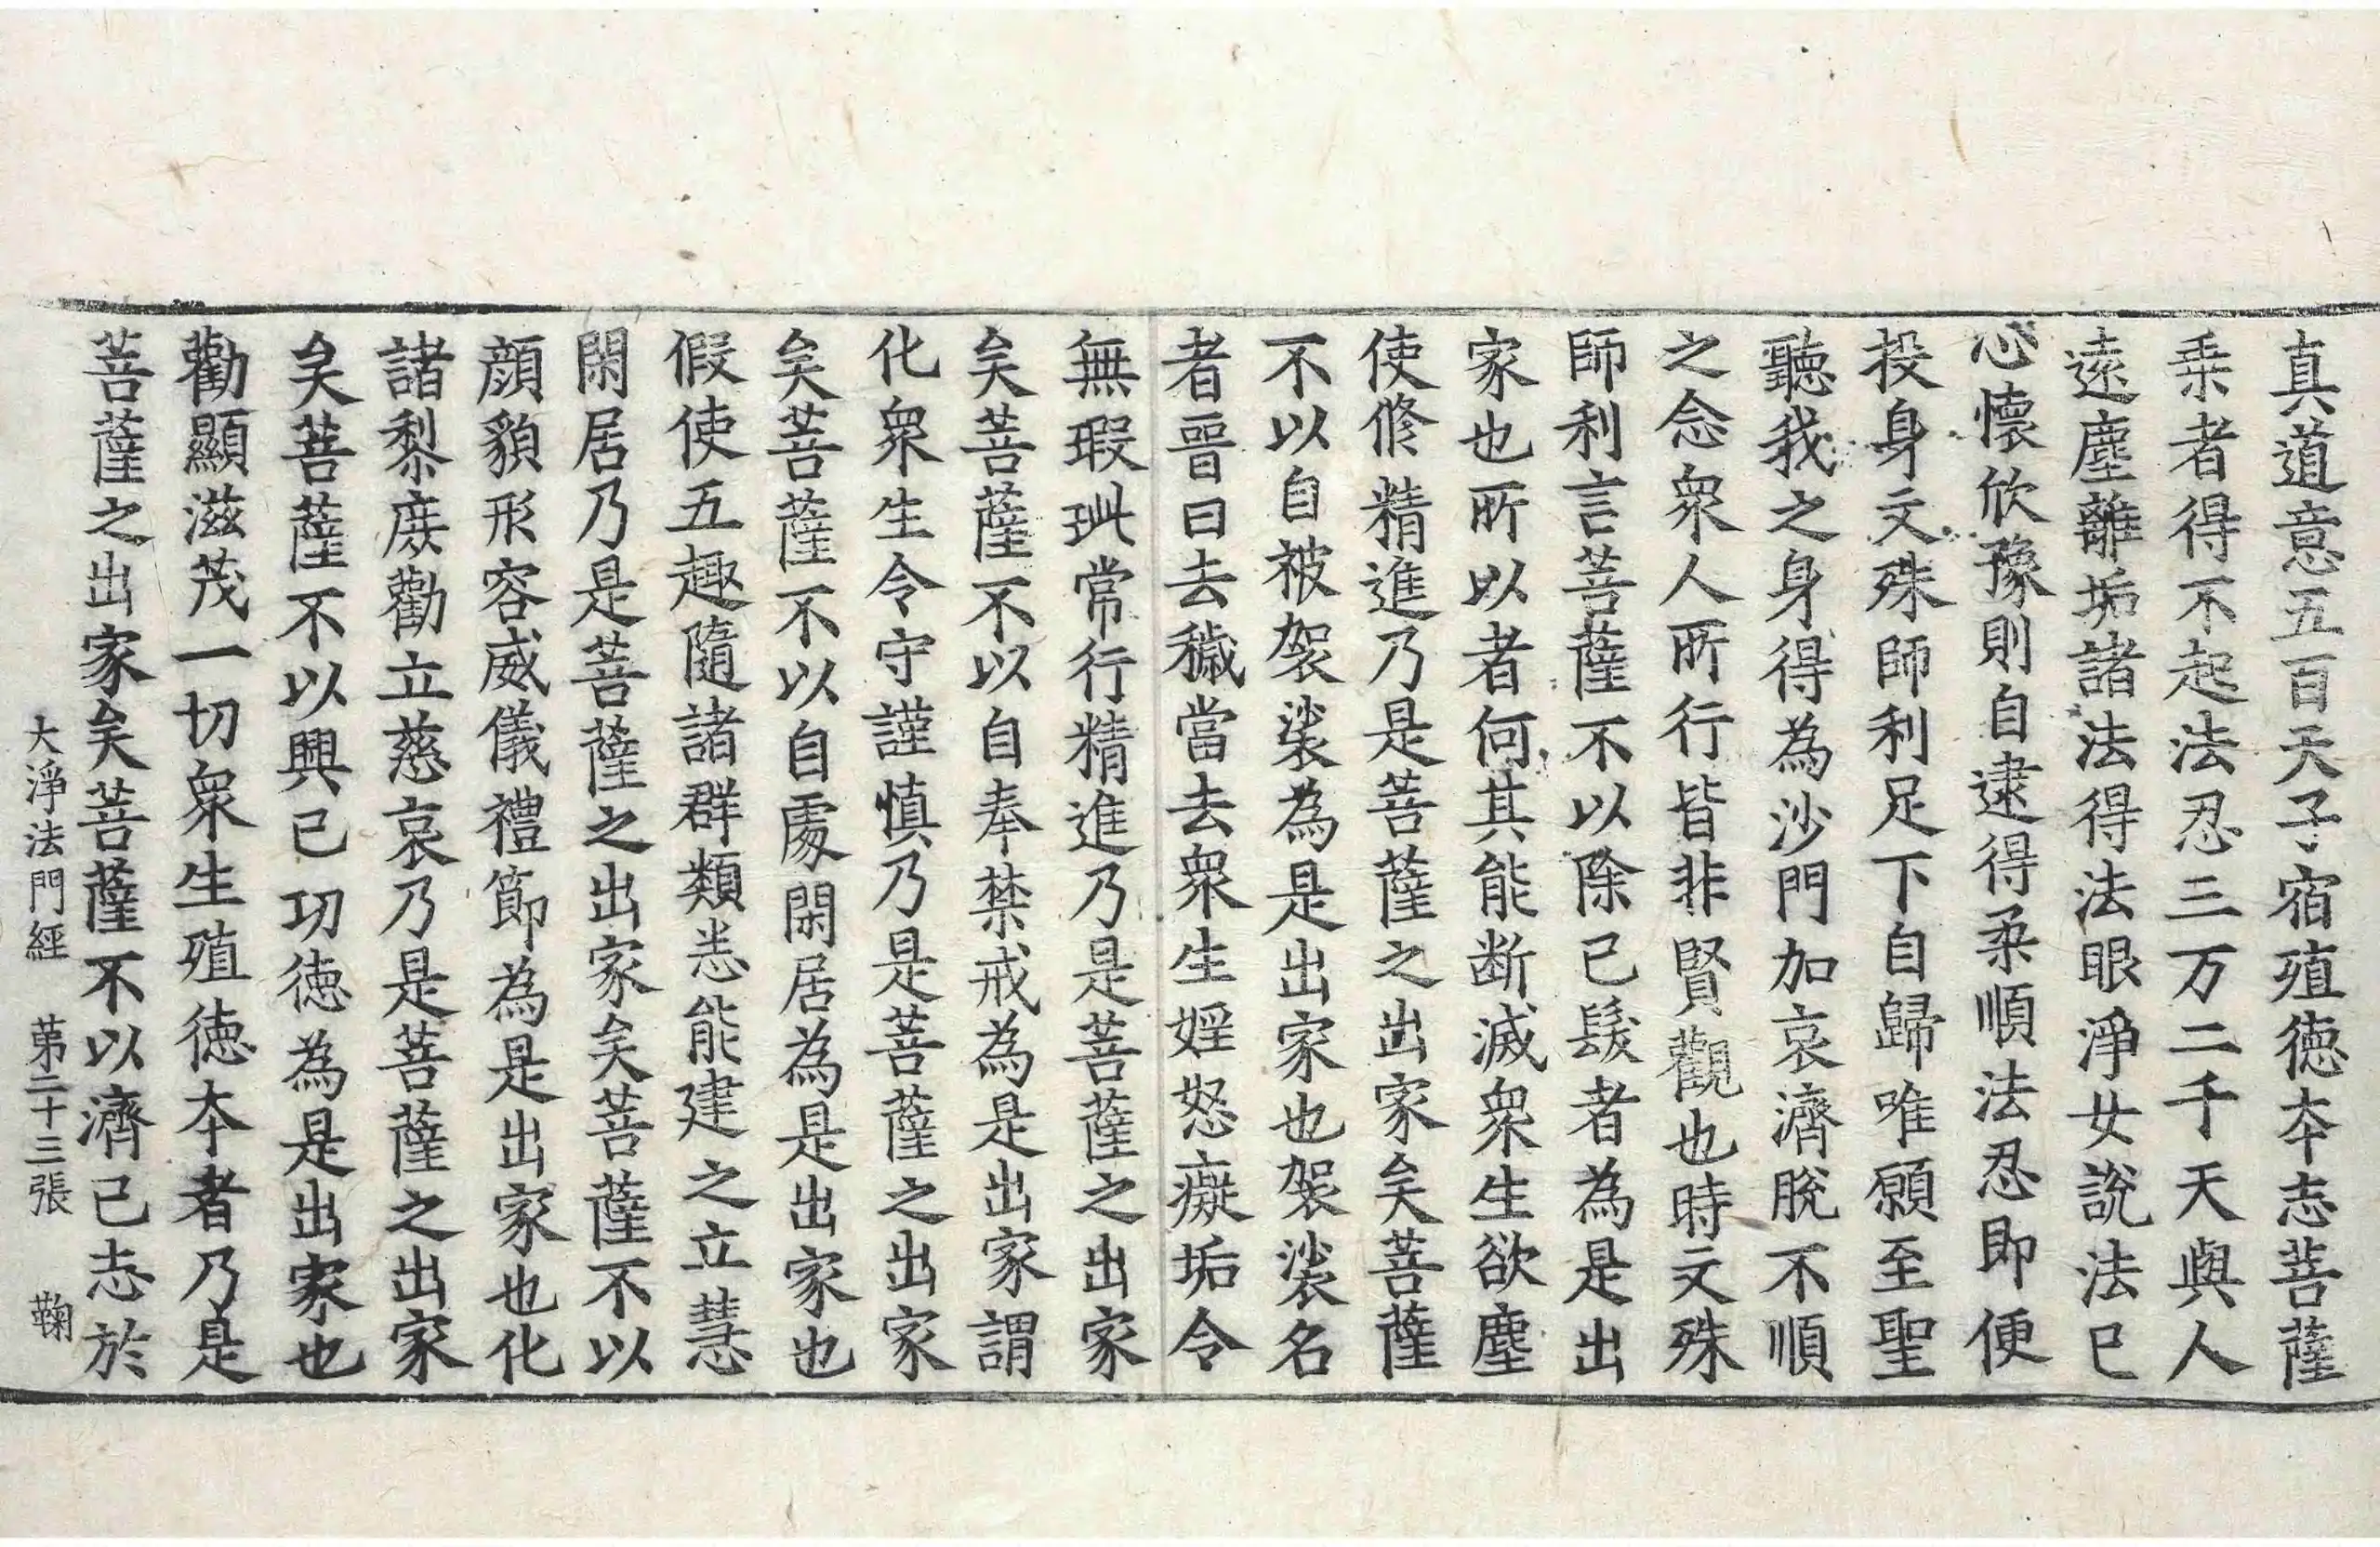 真道意五百天子宿殖徳夲志菩薩
乗者得不起法忍三万二千天與人
遠塵離垢諸法得法眼淨女說法已
心懷欣豫則自逮得柔順法忍即便
投身文殊師利足下自歸唯願至聖
聽我之身得為沙門加哀濟脫不順
之念衆人所行皆非賢觀也時文殊
師利言菩薩不以除已髮者為是出
家也所以者何其能断滅衆生欲塵
使修精進乃是菩薩之出家矣菩薩
不以自被袈裟為是出家也袈裟名
者晉曰去穢當去衆生婬怒癡垢令
無瑕玼常行精進乃是菩薩之出家
矣菩薩不以自奉禁戒為是出家謂
化衆生令守謹慎乃是菩薩之出家
矣菩薩不以自處閑居為是出家也
假使五趣隨諸群類悉能建之立慧
閑居乃是菩薩之出家矣菩薩不以
顔貌形容威儀禮節為是出家也化
諸黎庶勸立慈哀乃是菩薩之出家
矣菩薩不以興已功徳為是出家也
勸顯滋茂一切衆生殖徳夲者乃是
菩薩之出家矣菩薩不以濟已志於
大淨法門經　第二十三張　鞠